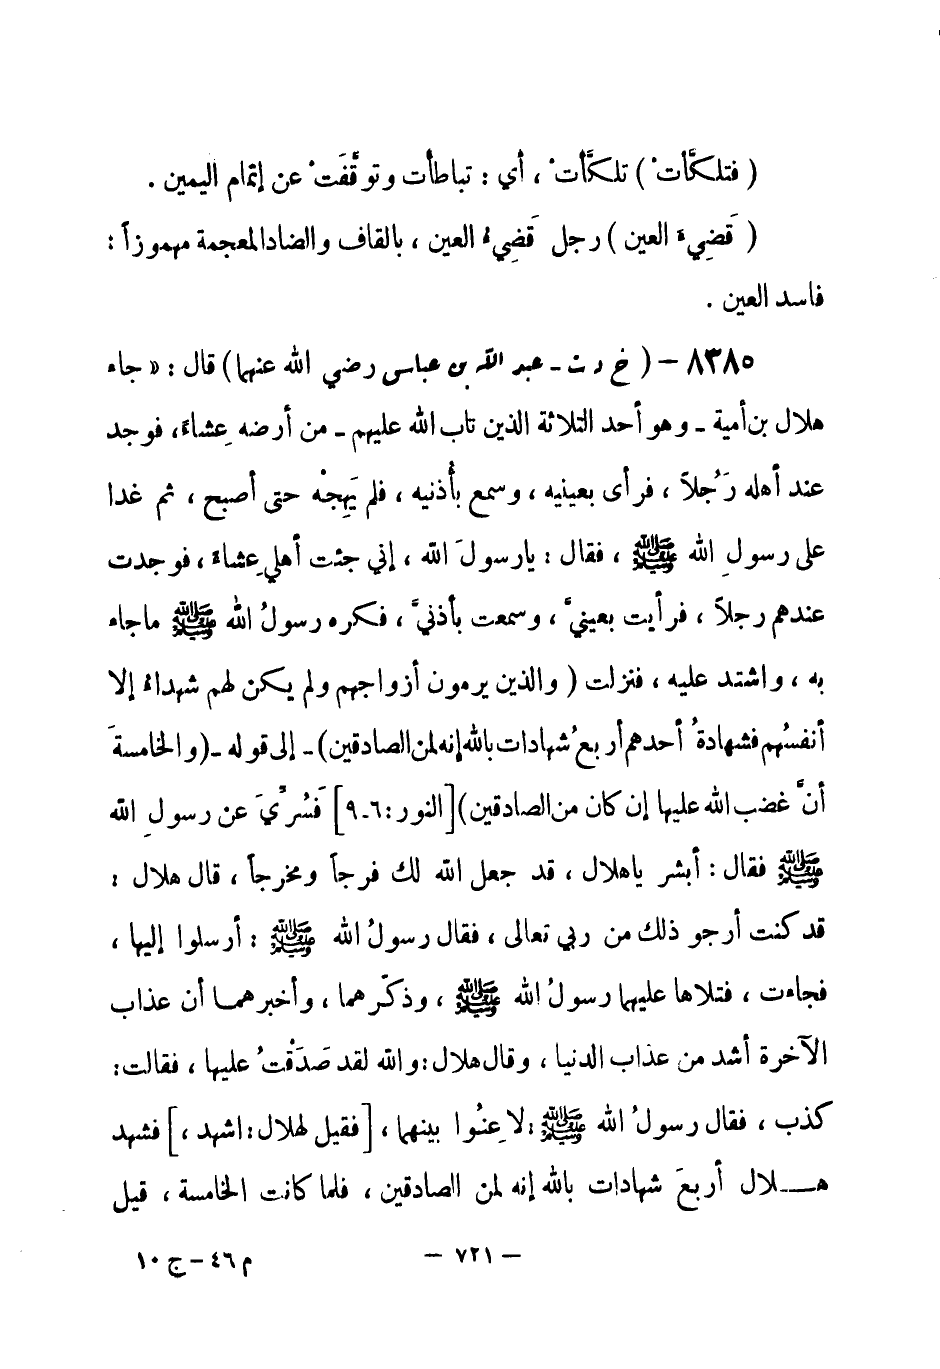 ( فتلكَّأتْ ) تلكَّأتْ ، أي : تباطأت وتوقَّفَتْ عن إتمام اليمين .
( قَضِيءَ العين ) رجل قَضِيءُ العين ، بالقاف والضاد المعجمة مهموزاً :
فاسد العين .
٨٣٨٥ – ( خ د ت ـ عبد الله بن عباس رضي الله عنهما ) قال : « جاء
هلال بن أمية ـ وهو أحد الثلاثة الذين تاب الله عليهم ـ من أرضه عِشاءً ، فوجد
عند أهله رَجُلاً ، فرأى بعينيه ، وسمع بأُذنيه ، فلم يَهِجْه حتى أصبح ، ثم غدا
على رسولِ الله ﷺ ، فقال : يارسولَ الله ، إني جئت أهلي عِشاءً ، فوجدت
عندهم رجلاً ، فرأيت بعينيَّ ، وسمعت بأذنيَّ ، فكره رسولُ الله ﷺ ماجاء
به ، واشتد عليه ، فنزلت ( والذين يرمون أزواجهم ولم يكن لهم شهداءُ إلا
أنفسُهم فشهادةُ أحدهم أربعُ شهادات بالله إنه لمن الصادقين ) ـ إلى قوله ـ ( والخامسةَ
أنَّ غضب الله عليها إن كان من الصادقين ) [ النور : ٦ـ٩ ] فَسُرِّيَ عن رسولِ الله
ﷺ فقال : أبشر ياهلال ، قد جعل الله لك فرجاً ومخرجاً ، قال هلال :
قد كنت أرجو ذلك من ربي تعالى ، فقال رسولُ الله ﷺ : أرسلوا إليها ،
فجاءت ، فتلاها عليهما رسولُ الله ﷺ ، وذكّرهما ، وأخبرهما أن عذاب
الآخرة أشد من عذاب الدنيا ، وقال هلال : والله لقد صَدَقْتُ عليها ، فقالت :
كذب ، فقال رسولُ الله ﷺ : لاعِنُوا بينهما ، [ فقيل لهلال : اشهد ، ] فشهد
هـلال أربعَ شهادات بالله إنه لمن الصادقين ، فلما كانت الخامسة ، قيل
– ٧٢١ – م ٤٦ – ج ١٠